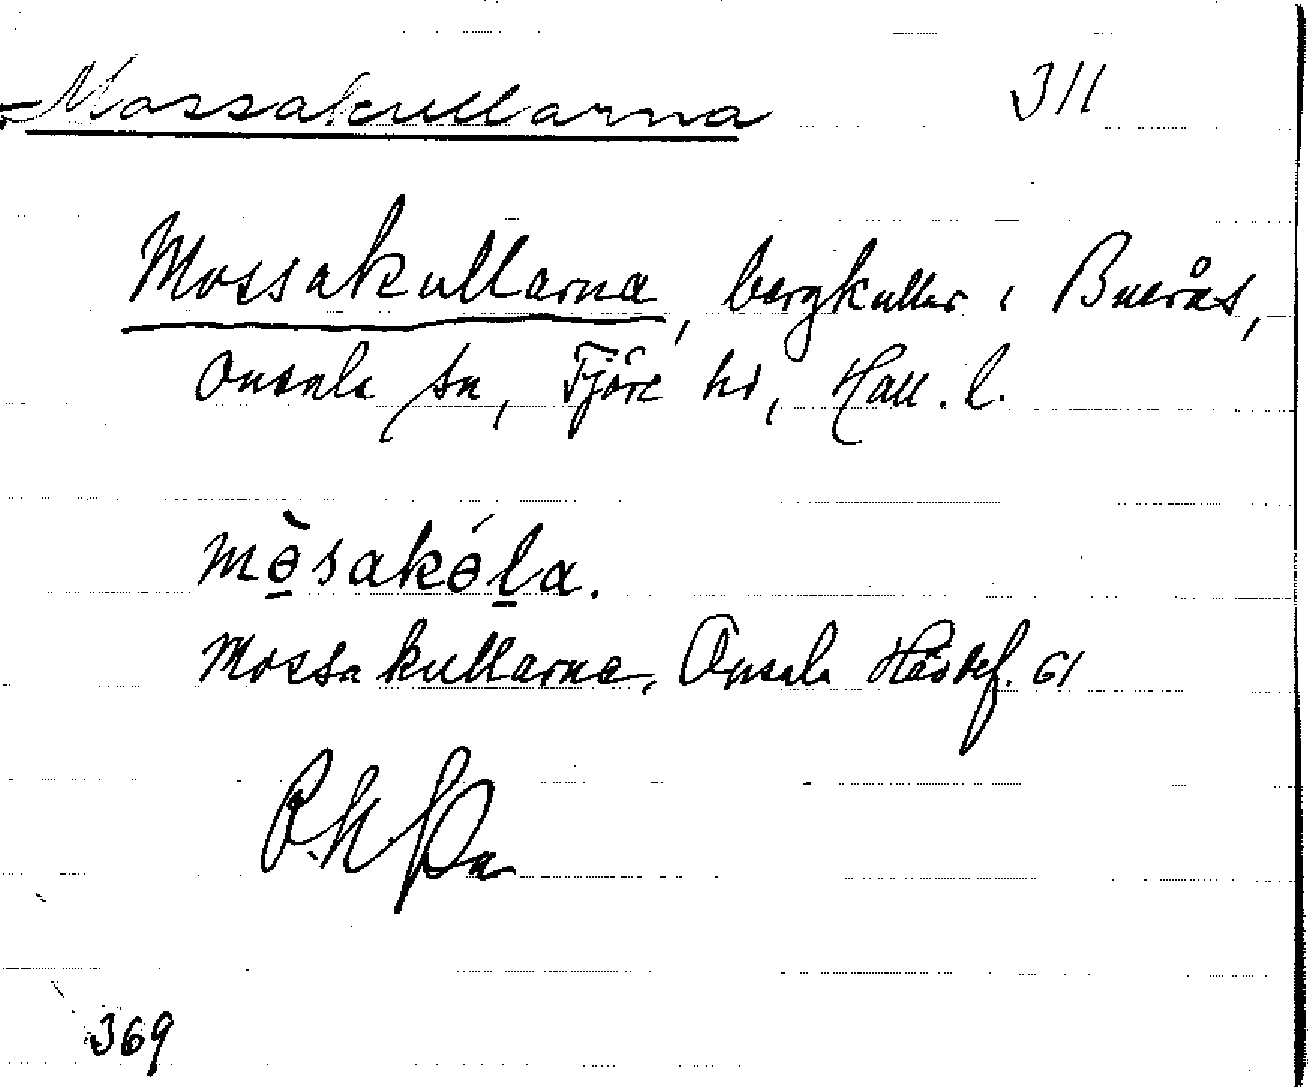 Mossakullarna 311
Mossakullarna, bergkullar i Buerås,
Onsala sn, Fjäre hd, Hall. l.
mòsakóla.
Mossakullarna, Onsala Häradsf. 61
369